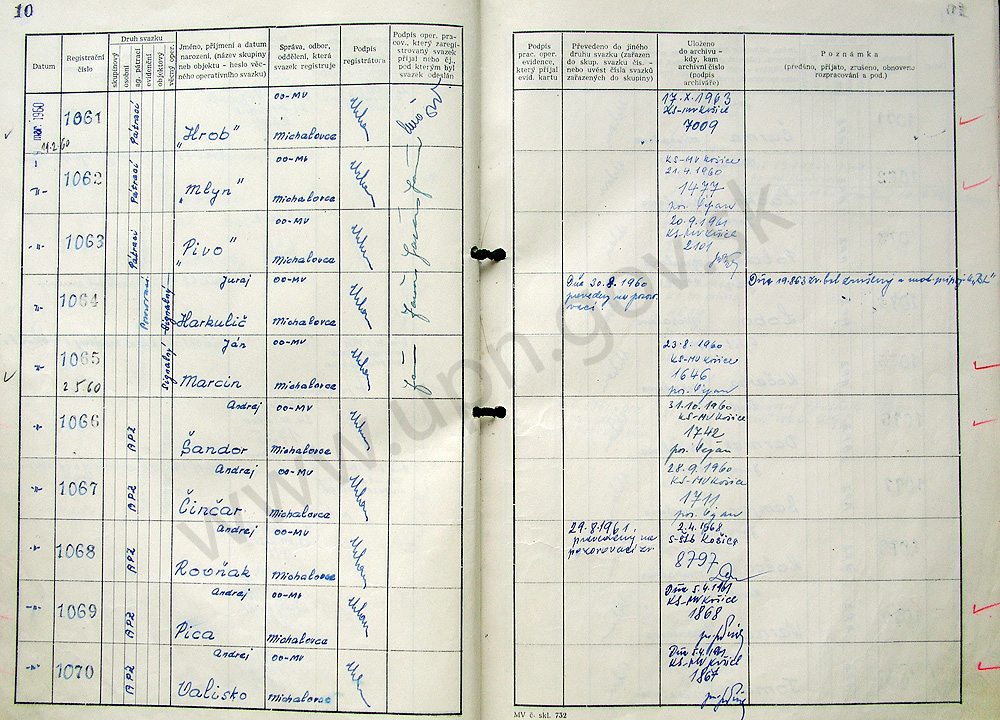 10
Datum
Registrační
číslo
Druh svazku
skupinový
osobní
ag. pátrací
evidenční
objektový
věcný oper.
Jméno, příjmení a datum
narození, (název skupiny
neb objektu - heslo věc-
ného operativního svazku)
Správa, odbor,
oddělení, která
svazek registruje
Podpis
registrátora
Podpis oper. pra-
cov., který zaregi-
strovaný svazek
přijal nebo čj.,
pod kterým byl
svazek odeslán
Podpis
prac. oper.
evidence,
který přijal
evid. kartu
Převedeno do jiného
druhu svazku (zařazen
do skup. svazku čís. -
nebo uvést čísla svazků
zařazených do skupiny)
Uloženo
do archivu -
kdy, kam
archivní číslo
(podpis
archiváře)
Poznámka
(předáno, přijato, zrušeno, obnoveno
rozpracování a pod.)
1960
11.2.60
1061
Pátrací
„Hrob"
OO-MV
Michalovce
17.X.1963
KS-MV Košice
7009
1062
Pátrací
„Mlyn"
OO-MV
Michalovce
KS-MV Košice
21.4.1960
1477
1063
Pátrací
„Pivo"
OO-MV
Michalovce
20.9.1961
KS-MV Košice
2101
1064
Pozorovací
Signálny
Juraj
Harkulič
OO-MV
Michalovce
Dňa 30.8.1960
prevedený na pozoro-
vací.
1065
2 5.60
Signálny
Ján
Marcin
OO-MV
Michalovce
23.8.1960
KS-MV Košice
1646
1066
APZ
Andrej
Šandor
OO-MV
Michalovce
31.10.1960
KS-MV Košice
1742
1067
APZ
Andrej
Činčar
OO-MV
Michalovce
28.9.1960
KS-MV Košice
1711
1068
APZ
Andrej
Rovňak
OO-MV
Michalovce
29.8.1961.
prevedený na
pozorovací zv.
2.4.1968
Košice
8797
1069
APZ
Andrej
Pica
OO-MV
Michalovce
Dňa 5.4.1961
KS-MV Košice
1868
1070
APZ
Andrej
Valisko
OO-MV
Michalovce
Dňa 5.4.1961
KS-MV Košice
1867
MV č. skl. 732
www.upn.gov.sk